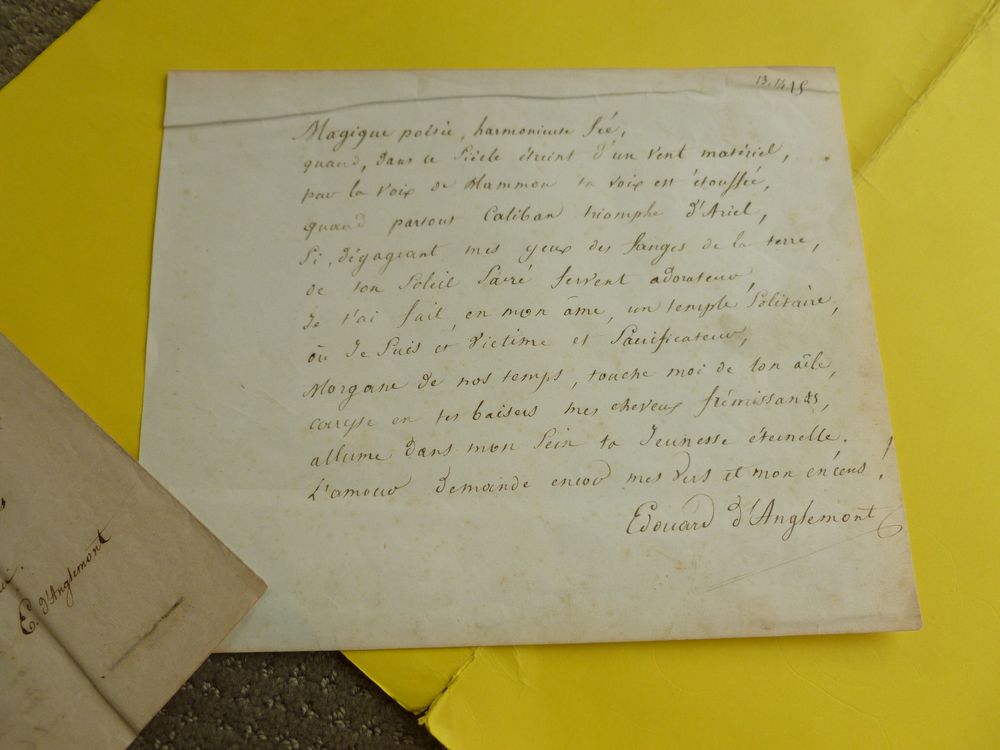 13.14.15
Magique poésie, harmonieuse fée,
quand, dans ce siècle éteint d'un vent matériel,
par la voix de Mammon ta voix est étouffée,
quand partout Caliban triomphe d'Ariel,
Si, dégageant mes yeux des fanges de la terre,
de ton Soleil Sacré fervent adorateur,
Je t'ai fait, en mon âme, un temple Solitaire,
où Je Suis et Victime et Sacrificateur,
Morgane de nos temps, touche moi de ton aîle,
en tes baisers mes cheveux frémissants,
allume dans mon Sein ta Jeunesse éternelle.
L'amour demande encor mes vers et mon encens!
Edouard d'Anglemont
E. d'Anglemont